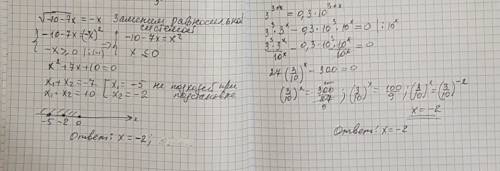 √-10-7x = -x Заменим равносильной
системой
{ -10-7x=(-x)² { -10-7x = x²
-x ≥ 0 |:(-1) x ≤ 0
x² + 7x + 10 = 0
x₁ + x₂ = -7 [ x₁ = -5 не подходит при
x₁ · x₂ = 10 [ x₂ = -2 подстановке
-5 -2 0 x
Ответ: x = -2;
3^{3+x} = 0,3·10^{3+x}
3³·3ˣ - 0,3·10³·10ˣ = 0 |:10ˣ
3³·3ˣ/10ˣ - 0,3·10³·10ˣ/10ˣ = 0
27(3/10)ˣ - 300 = 0
(3/10)ˣ = 300/27 ; (3/10)ˣ = 100/9 ; (3/10)ˣ = (3/10)⁻²
9
x = -2
Ответ: x = -2